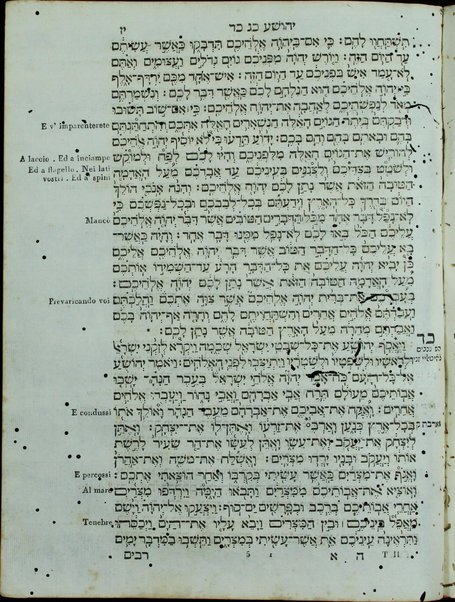 יהושע כג כד
יז
תִשְׁתַּחֲווּ לָהֶם: כִּי אִם־בַּיהוָֹה אֱלֹהֵיכֶם תִּדְבָּקוּ כַּאֲשֶׁר עֲשִׂיתֶם
עַד הַיּוֹם הַזֶּה: וַיּוֹרֶשׁ יְהוָֹה מִפְּנֵיכֶם גּוֹיִם גְּדֹלִים וַעֲצוּמִים וְאַתֶּם
לֹא־עָמַד אִישׁ בִּפְנֵיכֶם עַד הַיּוֹם הַזֶּה: אִישׁ־אֶחָד מִכֶּם יִרְדָּף־אָלֶף
כִּי יְהוָֹה אֱלֹהֵיכֶם הוּא הַנִּלְחָם לָכֶם כַּאֲשֶׁר דִּבֶּר לָכֶם: וְנִשְׁמַרְתֶּם
מְאֹד לְנַפְשֹׁתֵיכֶם לְאַהֲבָה אֶת־יְהוָֹה אֱלֹהֵיכֶם: כִּי אִם־שׁוֹב תָּשׁוּבוּ
וּדְבַקְתֶּם בְּיֶתֶר הַגּוֹיִם הָאֵלֶּה הַנִּשְׁאָרִים הָאֵלֶּה אִתְּכֶם וְהִתְחַתַּנְתֶּם
E v' imparenterete
בָּהֶם וּבָאתֶם בָּהֶם וְהֵם בָּכֶם: יָדוֹעַ תֵּדְעוּ כִּי לֹא יוֹסִיף יְהוָֹה אֱלֹהֵיכֶם
לְהוֹרִישׁ אֶת־הַגּוֹיִם הָאֵלֶּה מִלִּפְנֵיכֶם וְהָיוּ לָכֶם לְפַח וּלְמוֹקֵשׁ
A laccio. Ed a inciampe
וּלְשֹׁטֵט בְּצִדֵּיכֶם וְלִצְנִנִים בְּעֵינֵיכֶם עַד אֲבָדְכֶם מֵעַל הָאֲדָמָה
Ed a flagello. Nei lati
vostri. Ed a spini
הַטּוֹבָה הַזֹּאת אֲשֶׁר נָתַן לָכֶם יְהוָֹה אֱלֹהֵיכֶם: וְהִנֵּה אָנֹכִי הוֹלֵךְ
הַיּוֹם בְּדֶרֶךְ כָּל־הָאָרֶץ וִידַעְתֶּם בְּכָל־לְבַבְכֶם וּבְכָל־נַפְשְׁכֶם כִּי
לֹא־נָפַל דָּבָר אֶחָד מִכֹּל הַדְּבָרִים הַטּוֹבִים אֲשֶׁר דִּבֶּר יְהוָֹה אֱלֹהֵיכֶם
Mancò
עֲלֵיכֶם הַכֹּל בָּאוּ לָכֶם לֹא־נָפַל מִמֶּנּוּ דָּבָר אֶחָד: וְהָיָה כַּאֲשֶׁר־
בָּא עֲלֵיכֶם כָּל־הַדָּבָר הַטּוֹב אֲשֶׁר דִּבֶּר יְהוָֹה אֱלֹהֵיכֶם אֲלֵיכֶם
כֵּן יָבִיא יְהוָֹה עֲלֵיכֶם אֵת כָּל־הַדָּבָר הָרָע עַד־הַשְׁמִידוֹ אֹתְכֶם
מֵעַל הָאֲדָמָה הַטּוֹבָה הַזֹּאת אֲשֶׁר נָתַן לָכֶם יְהוָֹה אֱלֹהֵיכֶם:
בְּעָבְרְכֶם אֶת־בְּרִית יְהוָֹה אֱלֹהֵיכֶם אֲשֶׁר צִוָּה אֶתְכֶם וַהֲלַכְתֶּם
Prevaricando voi
וַעֲבַדְתֶּם אֱלֹהִים אֲחֵרִים וְהִשְׁתַּחֲוִיתֶם לָהֶם וְחָרָה אַף־יְהוָֹה בָּכֶם
וַאֲבַדְתֶּם מְהֵרָה מֵעַל הָאָרֶץ הַטּוֹבָה אֲשֶׁר נָתַן לָכֶם:
כד
וַיֶּאֱסֹף יְהוֹשֻׁעַ אֶת־כָּל־שִׁבְטֵי יִשְׂרָאֵל שְׁכֶמָה וַיִּקְרָא לְזִקְנֵי יִשְׂרָאֵל
וּלְרָאשָׁיו וּלְשֹׁפְטָיו וּלְשֹׁטְרָיו וַיִּתְיַצְּבוּ לִפְנֵי הָאֱלֹהִים: וַיֹּאמֶר יְהוֹשֻׁעַ
אֶל־כָּל־הָעָם כֹּה־אָמַר יְהוָֹה אֱלֹהֵי יִשְׂרָאֵל בְּעֵבֶר הַנָּהָר יָשְׁבוּ
אֲבוֹתֵיכֶם מֵעוֹלָם תֶּרַח אֲבִי אַבְרָהָם וַאֲבִי נָחוֹר וַיַּעַבְדוּ אֱלֹהִים
אֲחֵרִים: וָאֶקַּח אֶת־אֲבִיכֶם אֶת־אַבְרָהָם מֵעֵבֶר הַנָּהָר וָאוֹלֵךְ אֹתוֹ
E condussi
בְּכָל־אֶרֶץ כְּנָעַן וָאַרְבֶּ אֶת־זַרְעוֹ וָאֶתֶּן־לוֹ אֶת־יִצְחָק: וָאֶתֵּן
לְיִצְחָק אֶת־יַעֲקֹב וְאֶת־עֵשָׂו וָאֶתֵּן לְעֵשָׂו אֶת־הַר שֵׂעִיר לָרֶשֶׁת
אוֹתוֹ וְיַעֲקֹב וּבָנָיו יָרְדוּ מִצְרָיִם: וָאֶשְׁלַח אֶת־מֹשֶׁה וְאֶת־אַהֲרֹן
וָאֶגֹּף אֶת־מִצְרַיִם כַּאֲשֶׁר עָשִׂיתִי בְּקִרְבּוֹ וְאַחַר הוֹצֵאתִי אֶתְכֶם:
E percossi
וָאוֹצִיא אֶת־אֲבוֹתֵיכֶם מִמִּצְרַיִם וַתָּבֹאוּ הַיָּמָּה וַיִּרְדְּפוּ מִצְרַיִם
Al mare
אַחֲרֵי אֲבוֹתֵיכֶם בְּרֶכֶב וּבְפָרָשִׁים יַם־סוּף: וַיִּצְעֲקוּ אֶל־יְהוָֹה
וַיָּשֶׂם מַאֲפֵל בֵּינֵיכֶם וּבֵין הַמִּצְרִים וַיָּבֵא עָלָיו אֶת־הַיָּם וַיְכַסֵּהוּ
Tenebre
וַתִּרְאֶינָה עֵינֵיכֶם אֵת אֲשֶׁר־עָשִׂיתִי בְּמִצְרָיִם וַתֵּשְׁבוּ בַמִּדְבָּר יָמִים
T II
ה א
5 1
רבים